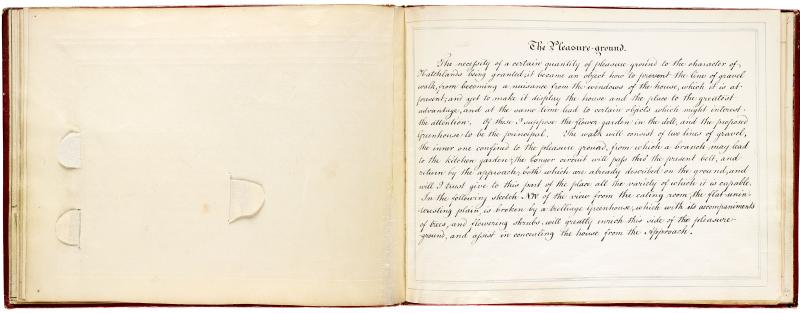 The Pleasure-ground.
The necessity of a certain quantity of pleasure ground to the character of,
Hatchlands being granted; it became an object how to prevent the line of gravel
walk, from becoming a nuisance from the windows of the house, which it is at
present; and yet to make it display the house and the place to the greatest
advantage, and at the same time lead to certain objects which might interest,
the attention. Of these I suppose the flower garden in the dell, and the proposed
Greenhouse to be the principal. The walk will consist of two lines of gravel,
the inner one confined to the pleasure ground, from which a branch may lead
to the kitchen garden; the longer circuit will pass thro' the present belt, and
return by the approach; both which are already described on the ground, and
will I trust give to this part of the place all the variety of which it is capable.
In the following sketch No. of the view from the eating room, the flat unin-
teresting plain, is broken by a trelliage Greenhouse, which with its accompaniments
of trees, and flowering shrubs, will greatly enrich this side of the pleasure-
ground, and assist in concealing the house from the Approach.